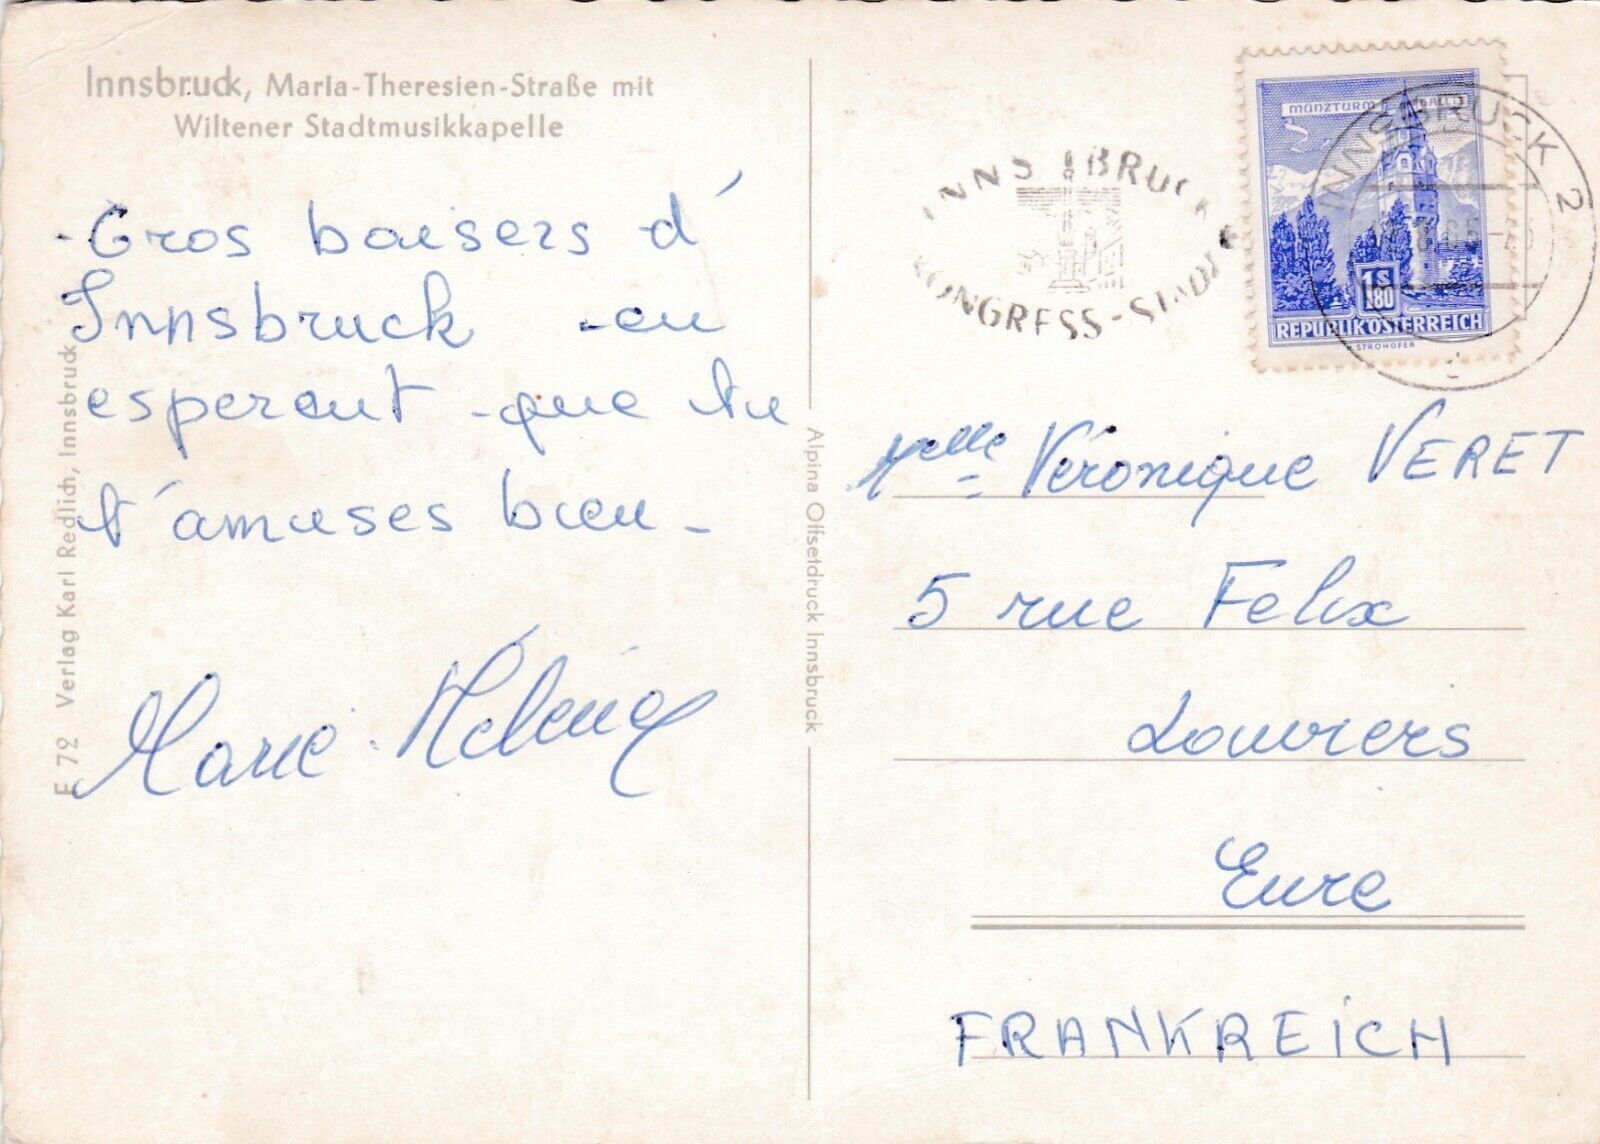 Innsbruck, Maria-Theresien-Straße mit
Wiltener Stadtmusikkapelle
Gros baisers d'
Innsbruck en
esperant que tu
t'amuses bien
Marie-Hélène
E 72 Verlag Karl Redlich, Innsbruck
Alpina Offsetdruck Innsbruck
INNSBRUCK
KONGRESS-STADT
MÜNZTURM
REPUBLIK ÖSTERREICH
1S
80
STROHOFER
INNSBRUCK 2
Melle Véronique VERET
5 rue Felix
Louviers
Eure
FRANKREICH